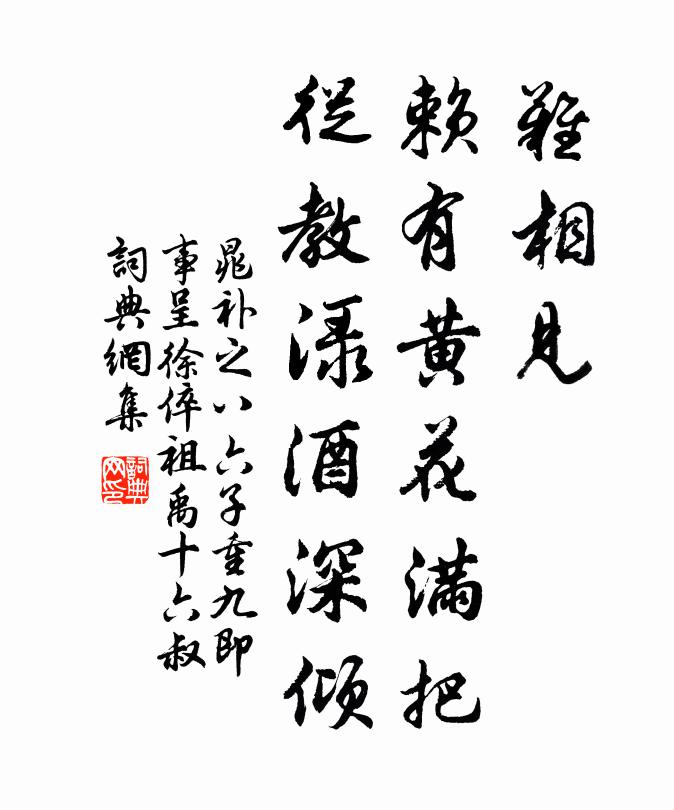 難相見
賴有黃花滿把
從教淥酒深傾
晁补之八六子重九即
事呈徐倅祖禹十六叔
詞典網集
詞典
网印